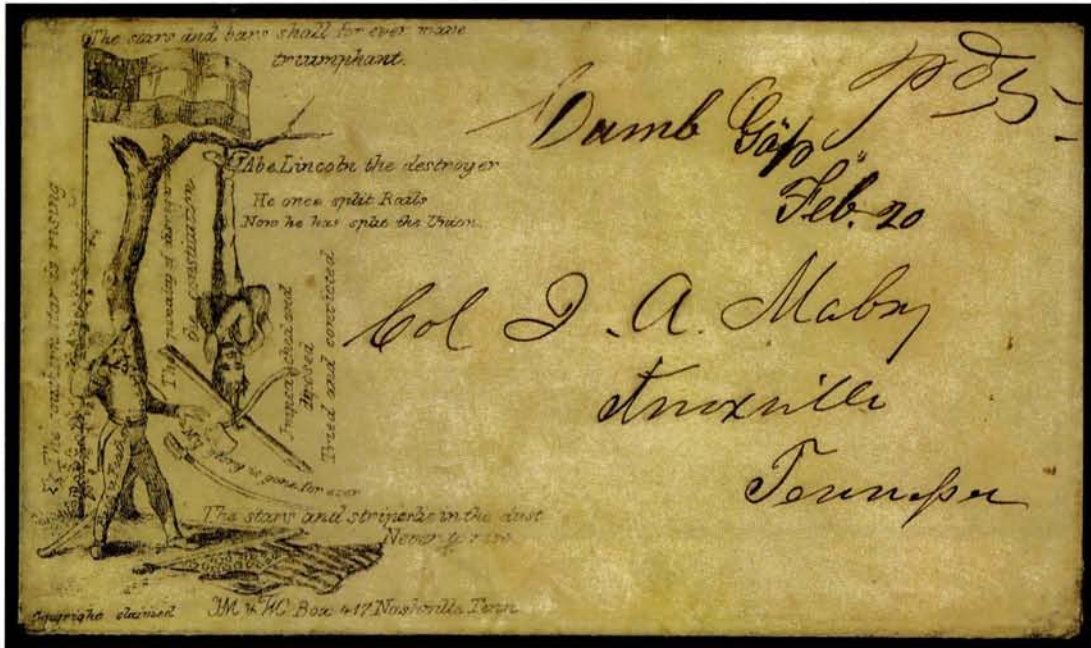 The stars and bars shall for ever wave
triumphant.
Abe Lincoln the destroyer
He once split Rails
Now he has split the Union.
The southern star is rising
The of
Impeached and
deposed
Tried and convicted
My is gone for ever
The stars and stripes lie in the dust
Never to rise
Copyright claimed
JM & HC Box 417 Nashville Tenn
pd 5
Feb. 20
Col J. A. Mabry
Knoxville
Tennessee